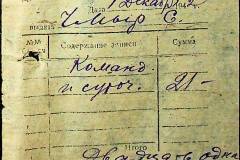 Дата 1 Декабр
выдать
С.
№№ Содержание записи Сумма
Команд
и суточ. 21-
Итого
Двадцать один